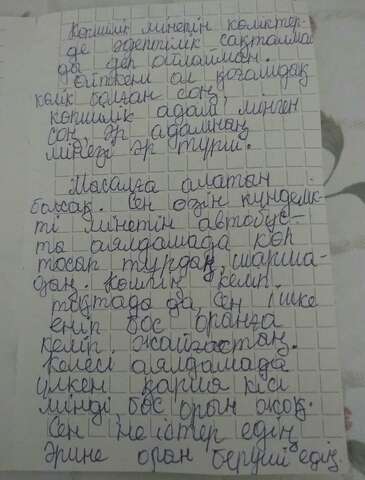 Көпшілік мінетін көліктер-
де әдептілік сақталма
ды деп ойлаймын.
Өйткені ол қоғамдық
көлік болған соң,
көпшілік адам мінген
соң, әр адамның
мінезі әр түрлі.
Мысалға алатын
болсақ. Сен өзің күнделік-
ті мінетін автобус-
та аялдамада көп
тосып тұрдың, шарша-
дың. Көлігің келіп
тоқтады да, сен ішке
еніп бос орынға
келіп жайғастың.
Келесі аялдамада
үлкен қария кісі
мінді, бос орын жоқ.
Сен не істер едің
Әрине орын беруші едің.